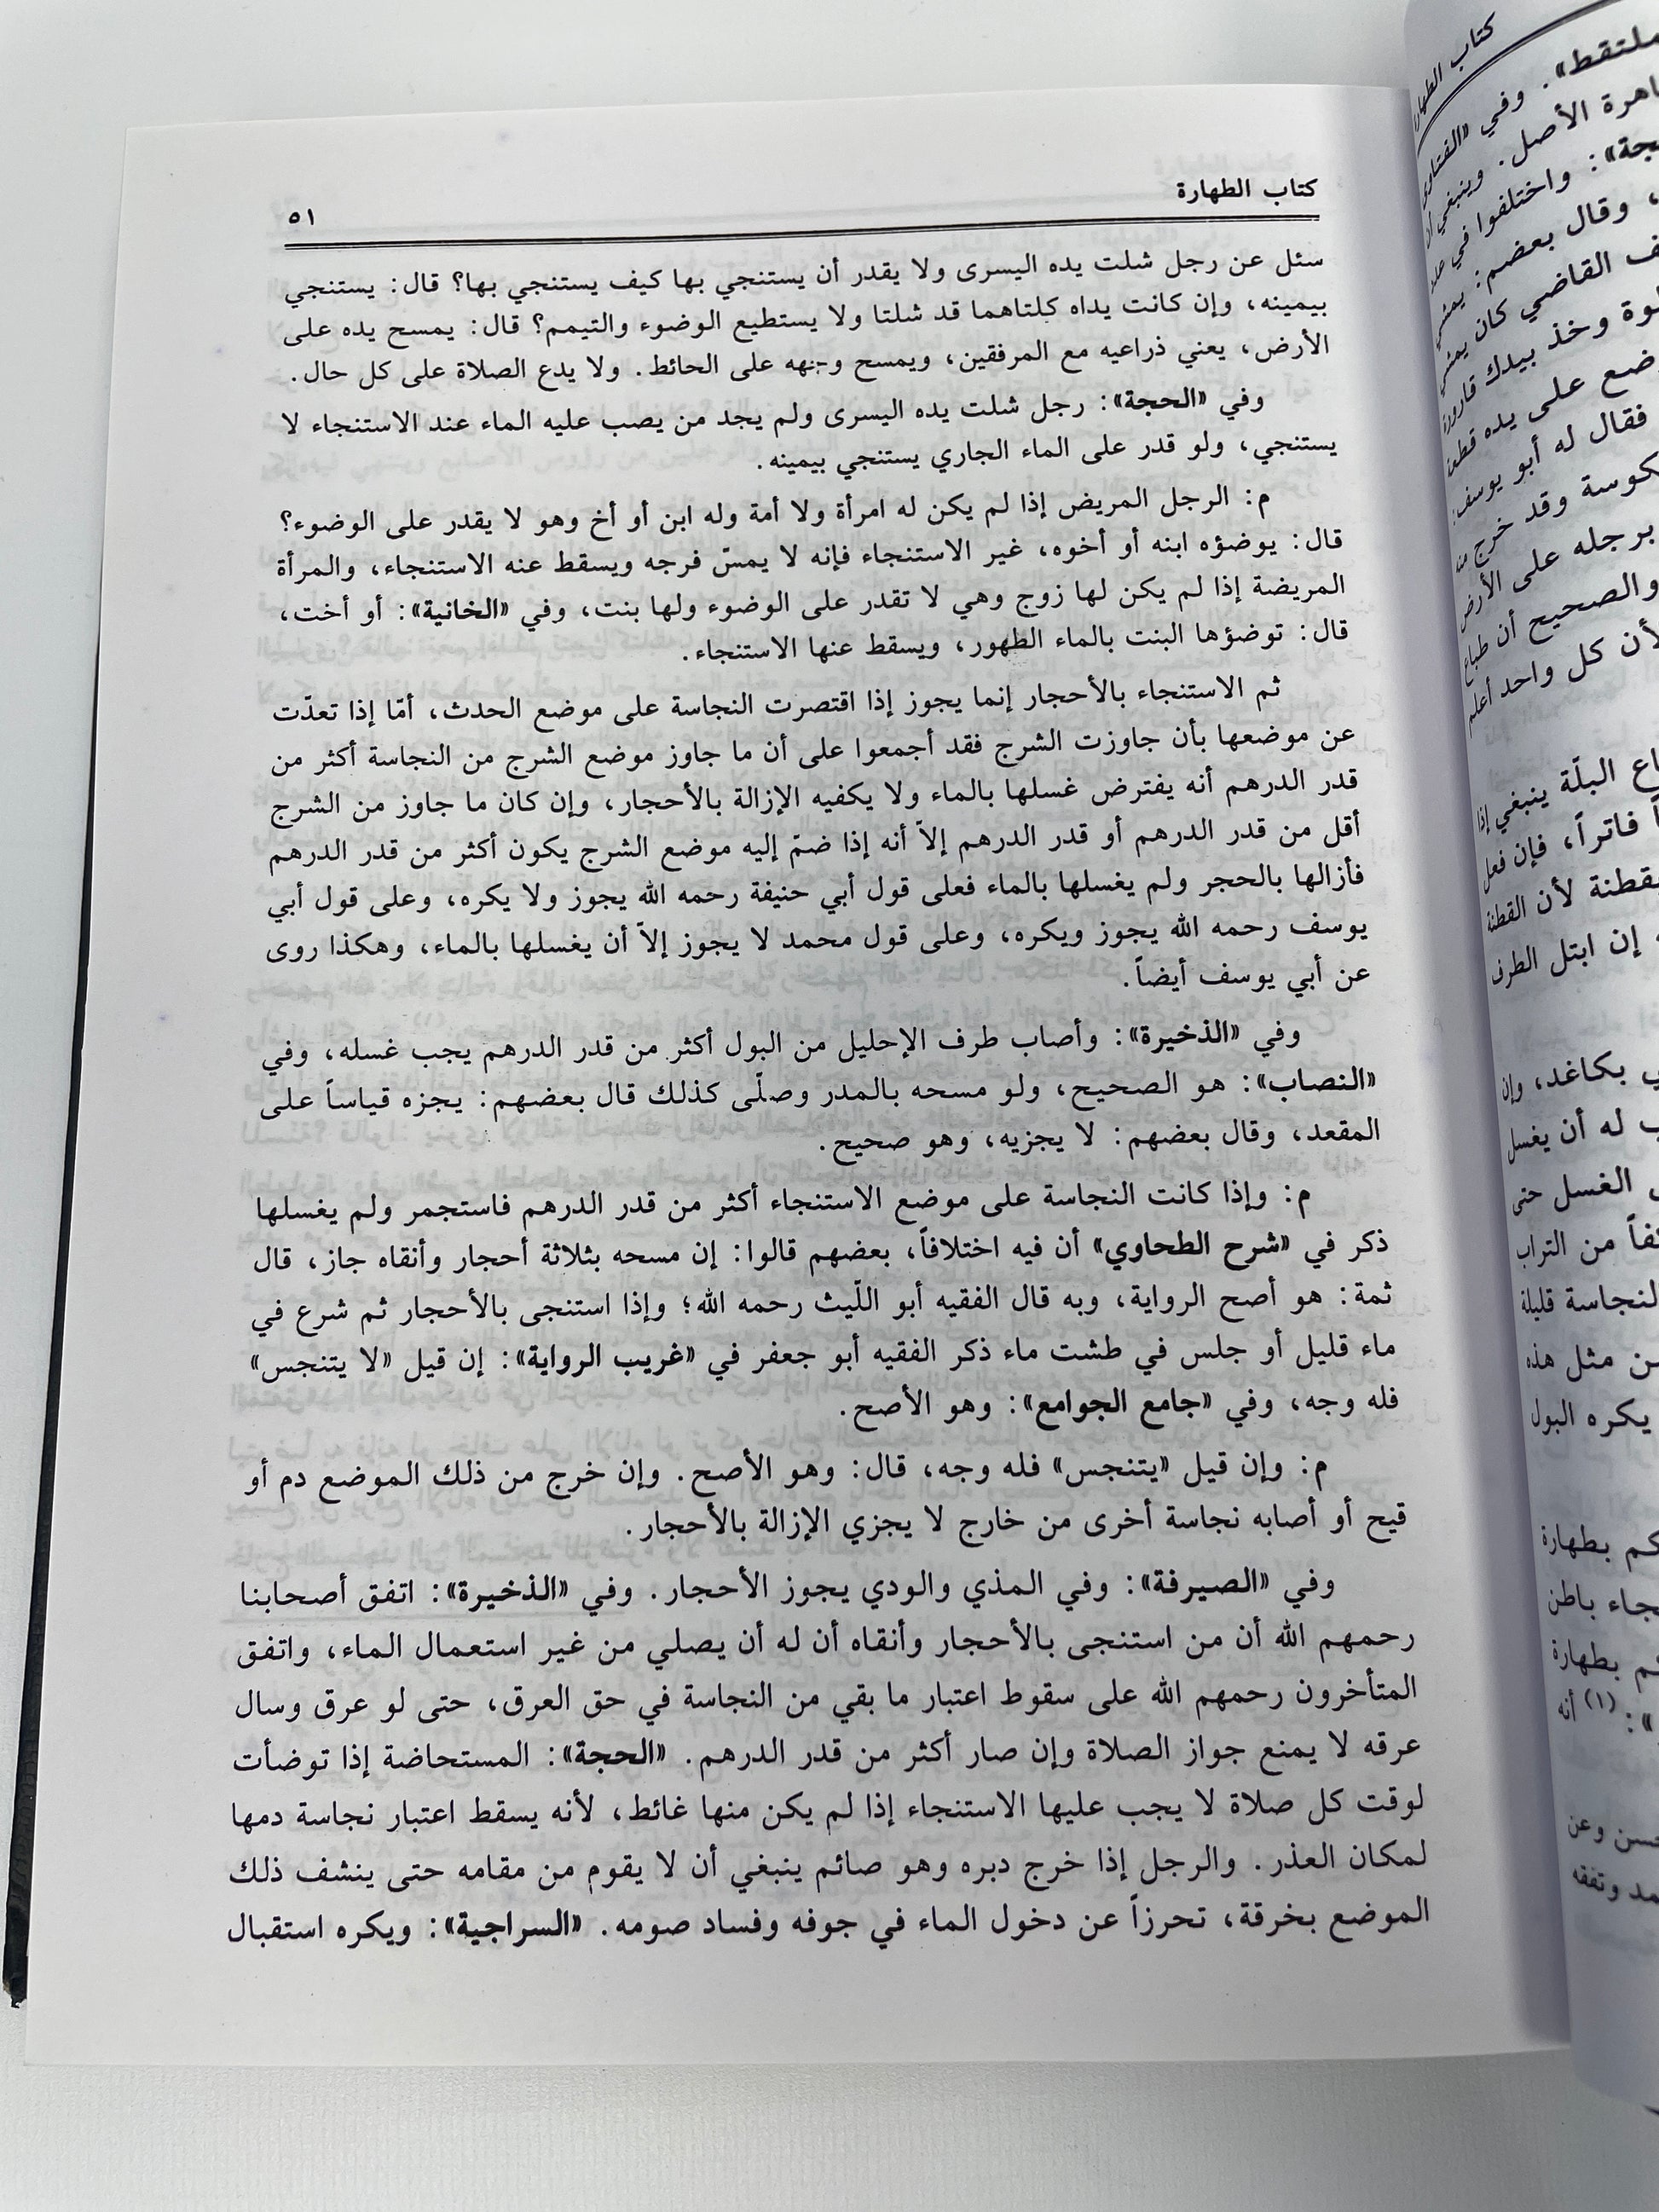 كتاب الطهارة
٥١
سئل عن رجل شلت يده اليسرى ولا يقدر أن يستنجي بها كيف يستنجي بها؟ قال: يستنجي
بيمينه، وإن كانت يداه كلتاهما قد شلتا ولا يستطيع الوضوء والتيمم؟ قال: يمسح يده على
الأرض، يعني ذراعيه مع المرفقين، ويمسح وجهه على الحائط. ولا يدع الصلاة على كل حال.
وفي «الحجة»: رجل شلت يده اليسرى ولم يجد من يصب عليه الماء عند الاستنجاء لا
يستنجي، ولو قدر على الماء الجاري يستنجي بيمينه.
م: الرجل المريض إذا لم يكن له امرأة ولا أمة وله ابن أو أخ وهو لا يقدر على الوضوء؟
قال: يوضؤه ابنه أو أخوه، غير الاستنجاء فإنه لا يمسّ فرجه ويسقط عنه الاستنجاء، والمرأة
المريضة إذا لم يكن لها زوج وهي لا تقدر على الوضوء ولها بنت، وفي «الخانية»: أو أخت،
قال: توضؤها البنت بالماء الطهور، ويسقط عنها الاستنجاء.
ثم الاستنجاء بالأحجار إنما يجوز إذا اقتصرت النجاسة على موضع الحدث، أمّا إذا تعدّت
عن موضعها بأن جاوزت الشرج فقد أجمعوا على أن ما جاوز موضع الشرج من النجاسة أكثر من
قدر الدرهم أنه يفترض غسلها بالماء ولا يكفيه الإزالة بالأحجار، وإن كان ما جاوز من الشرج
أقل من قدر الدرهم أو قدر الدرهم إلاّ أنه إذا ضمّ إليه موضع الشرج يكون أكثر من قدر الدرهم
فأزالها بالحجر ولم يغسلها بالماء فعلى قول أبي حنيفة رحمه الله يجوز ولا يكره، وعلى قول أبي
يوسف رحمه الله يجوز ويكره، وعلى قول محمد لا يجوز إلاّ أن يغسلها بالماء، وهكذا روى
عن أبي يوسف أيضاً.
وفي «الذخيرة»: وأصاب طرف الإحليل من البول أكثر من قدر الدرهم يجب غسله، وفي
«النصاب»: هو الصحيح، ولو مسحه بالمدر وصلّى كذلك قال بعضهم: يجزه قياساً على
المقعد، وقال بعضهم: لا يجزيه، وهو صحيح.
م: وإذا كانت النجاسة على موضع الاستنجاء أكثر من قدر الدرهم فاستجمر ولم يغسلها
ذكر في «شرح الطحاوي» أن فيه اختلافاً، بعضهم قالوا: إن مسحه بثلاثة أحجار وأنقاه جاز، قال
ثمة: هو أصح الرواية، وبه قال الفقيه أبو اللّيث رحمه الله؛ وإذا استنجى بالأحجار ثم شرع في
ماء قليل أو جلس في طشت ماء ذكر الفقيه أبو جعفر في «غريب الرواية»: إن قيل «لا يتنجس»
فله وجه، وفي «جامع الجوامع»: وهو الأصح.
م: وإن قيل «يتنجس» فله وجه، قال: وهو الأصح. وإن خرج من ذلك الموضع دم أو
قيح أو أصابه نجاسة أخرى من خارج لا يجزي الإزالة بالأحجار.
وفي «الصيرفة»: وفي المذي والودي يجوز الأحجار. وفي «الذخيرة»: اتفق أصحابنا
رحمهم الله أن من استنجى بالأحجار وأنقاه أن له أن يصلي من غير استعمال الماء، واتفق
المتأخرون رحمهم الله على سقوط اعتبار ما بقي من النجاسة في حق العرق، حتى لو عرق وسال
عرقه لا يمنع جواز الصلاة وإن صار أكثر من قدر الدرهم. «الحجة»: المستحاضة إذا توضأت
لوقت كل صلاة لا يجب عليها الاستنجاء إذا لم يكن منها غائط، لأنه يسقط اعتبار نجاسة دمها
لمكان العذر. والرجل إذا خرج دبره وهو صائم ينبغي أن لا يقوم من مقامه حتى ينشف ذلك
الموضع بخرقة، تحرزاً عن دخول الماء في جوفه وفساد صومه. «السراجية»: ويكره استقبال